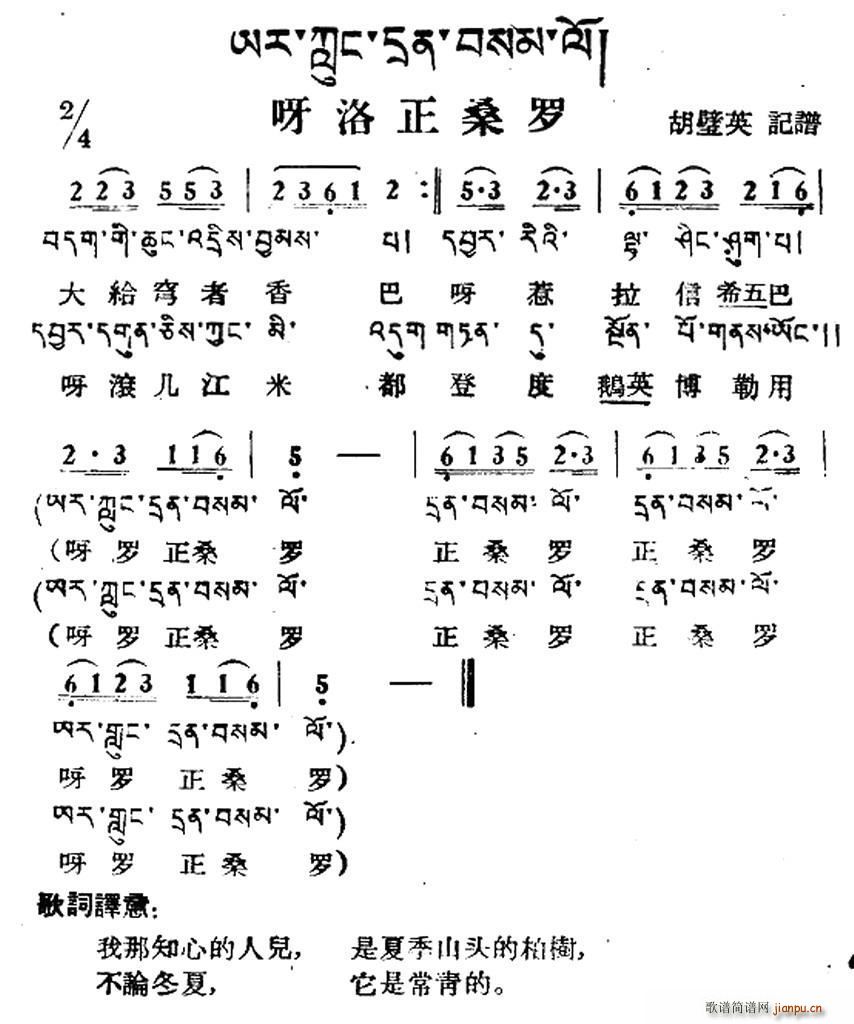 ཨར་ཀླུང་དྲན་བསམ་ལོ།
2/4 呀洛正桑罗 胡璧英 記譜
2 2 3 5 5 3 | 2 3 6 1 2 :‖ 5·3 2·3 | 6 1 2 3 2 1 6 |
བདག་གི་ཆུང་འདྲིས་བྱམས་ པ། དབྱར་ རིའི་ ལྟ་ ཤིང་ཤུག་པ།
大給穹者香 巴呀惹 拉信希五巴
དབྱར་དགུན་ཅིས་ཀྱང་མི་ འདུག གཏན་ དུ་ སྔོན་ པོ་གནས་ཡོང་།།
呀滾几江米 都登度 鵝英博勒用
2·3 1 1 6 | 5 — | 6 1 3 5 2·3 | 6 1 3 5 2·3 |
(ཨར་ཀླུང་དྲན་བསམ་ ལོ་ དྲན་བསམ་ ལོ་ དྲན་བསམ་ ལོ་
(呀罗正桑罗 正桑罗 正桑罗
(ཨར་ཀླུང་དྲན་བསམ་ ལོ་ དྲན་བསམ་ ལོ་ དྲན་བསམ་ ལོ་
(呀罗正桑罗 正桑罗 正桑罗
6 1 2 3 1 1 6 | 5 — ‖
ཨར་ཀླུང་ དྲན་བསམ་ ལོ་)
呀罗 正桑 罗)
ཨར་ཀླུང་ དྲན་བསམ་ ལོ་)
呀罗 正桑 罗)
歌詞譯意:
我那知心的人兒, 是夏季山头的柏樹,
不論冬夏, 它是常青的。
歌谱简谱网 jianpu.cn